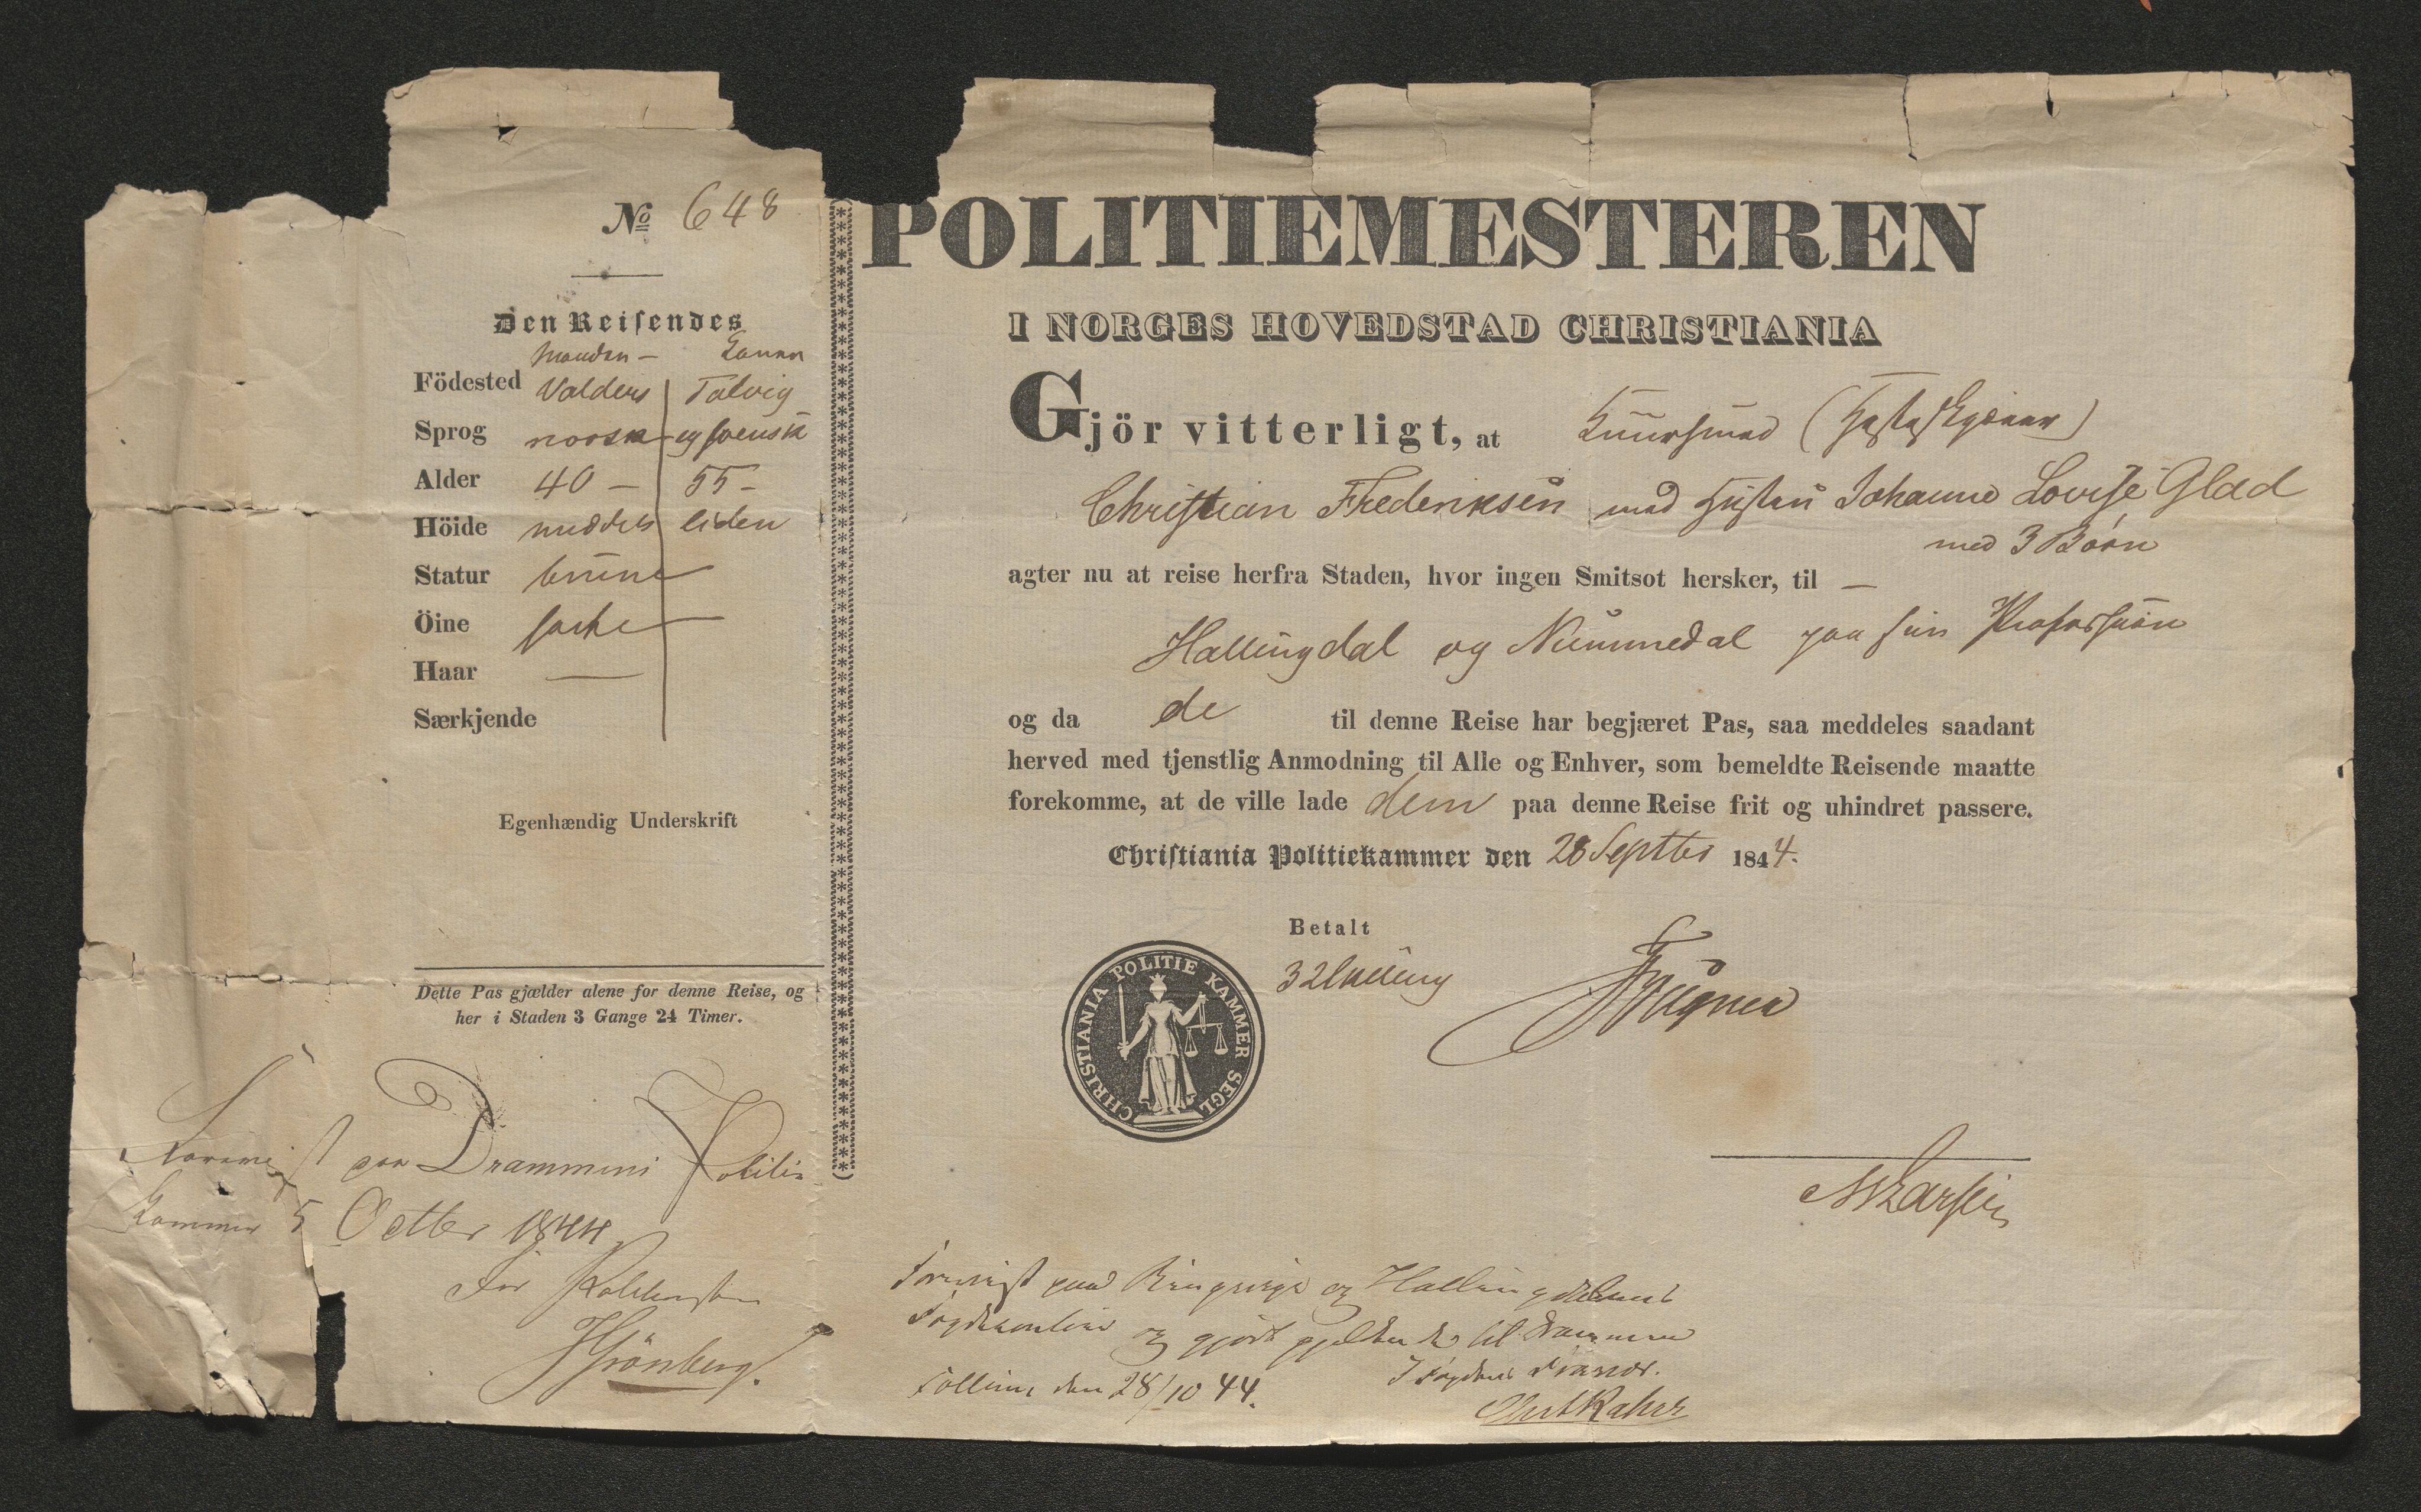 No 648
Den Reisendes
Manden — Konen
Födested Valders Talvig
Sprog norsk og svensk
Alder 40 — 55 -
Höide middels liden
Statur
Öine
Haar —
Særkjende
Egenhændig Underskrift
Dette Pas gjælder alene for denne Reise, og
her i Staden 3 Gange 24 Timer.
paa Drammens Politie
Kammer 5 Octbr 1844
For Politimesteren
Grönberg.
POLITIEMESTEREN
I NORGES HOVEDSTAD CHRISTIANIA
Gjör vitterligt, at
Christian Frederiksen med Hustru Johanne Lovise Glad
med 3 Börn
agter nu at reise herfra Staden, hvor ingen Smitsot hersker, til —
Hallingdal og Nummedal paa sin Profession
og da de til denne Reise har begjæret Pas, saa meddeles saadant
herved med tjenstlig Anmodning til Alle og Enhver, som bemeldte Reisende maatte
forekomme, at de ville lade dem paa denne Reise frit og uhindret passere.
Christiania Politiekammer den 28 Septbr 1844.
Betalt
32 skilling
CHRISTIANIA POLITIE KAMMER SEGL
Larsen
Foreviist paa Ringerigs og Hallingdalens
Fogdekontoir og gjort gjeldende til Drammen
den 28/10 44.
I Fogdens Fravær.